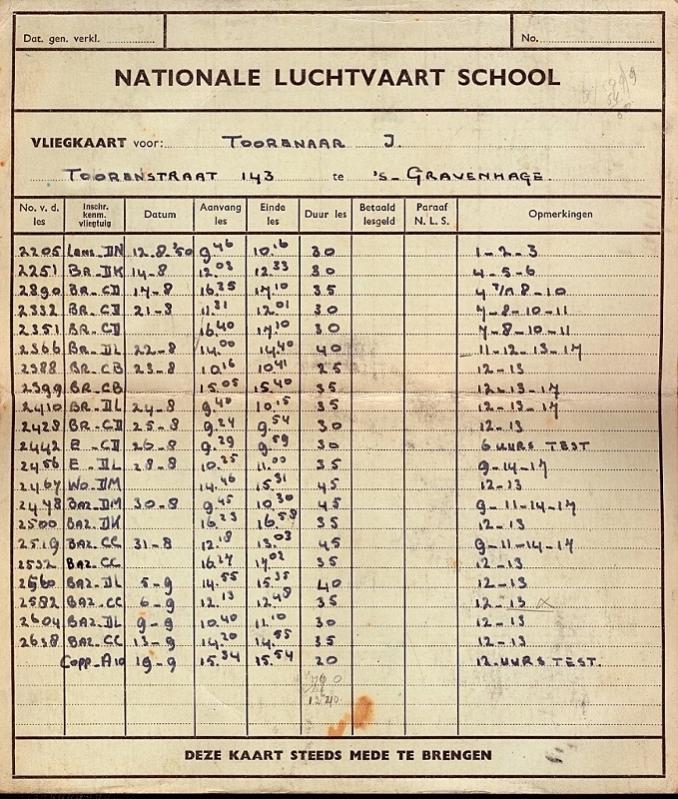 Dat. gen. verkl. No.
NATIONALE LUCHTVAART SCHOOL
VLIEGKAART voor: TOORENAAR J.
TOORENSTRAAT 143 te 's-GRAVENHAGE.
No. v. d. les Inschr. kenm. vliegtuig Datum Aanvang les Einde les Duur les Betaald lesgeld Paraaf N. L. S. Opmerkingen
2205 DN 12.8.'50 9.46 10.16 30 1-2-3
2251 BR-DK 14-8 12.03 12.33 30 4-5-6
2890 BR-CD 17-8 16.35 17.10 35 4 T/M 8-10
2332 BR-CD 21-8 11.31 12.01 30 7-8-10-11
2351 BR-CD 16.40 17.10 30 7-8-10-11
2366 BR-DL 22-8 14.00 14.40 40 11-12-13-17
2388 BR-CB 23-8 10.16 10.41 25 12-13
2399 BR-CB 15.05 15.40 35 12-13-17
2410 BR-DL 24-8 9.40 10.15 35 12-13-17
2428 BR-CD 25-8 9.24 9.54 30 12-13
2442 E-CD 26-8 9.29 9.59 30 6 UURS TEST
2456 E-DL 28-8 10.25 11.00 35 9-14-17
2467 WO-DM 14.46 15.31 45 12-13
2478 BAZ-DM 30-8 9.45 10.30 45 9-11-14-17
2500 BAZ-DK 16.23 16.58 35 12-13
2519 BAZ-CC 31-8 12.18 13.03 45 9-11-14-17
2532 BAZ-CC 16.27 17.02 35 12-13
2560 BAZ-DL 5-9 14.55 15.35 40 12-13
2582 BAZ-CC 6-9 12.13 12.48 35 12-13 x
2604 BAZ-DL 9-9 10.40 11.10 30 12-13
2638 BAZ-CC 13-9 14.20 14.55 35 12-13
COPP-A10 19-9 15.34 15.54 20 12-UURS TEST.
DEZE KAART STEEDS MEDE TE BRENGEN